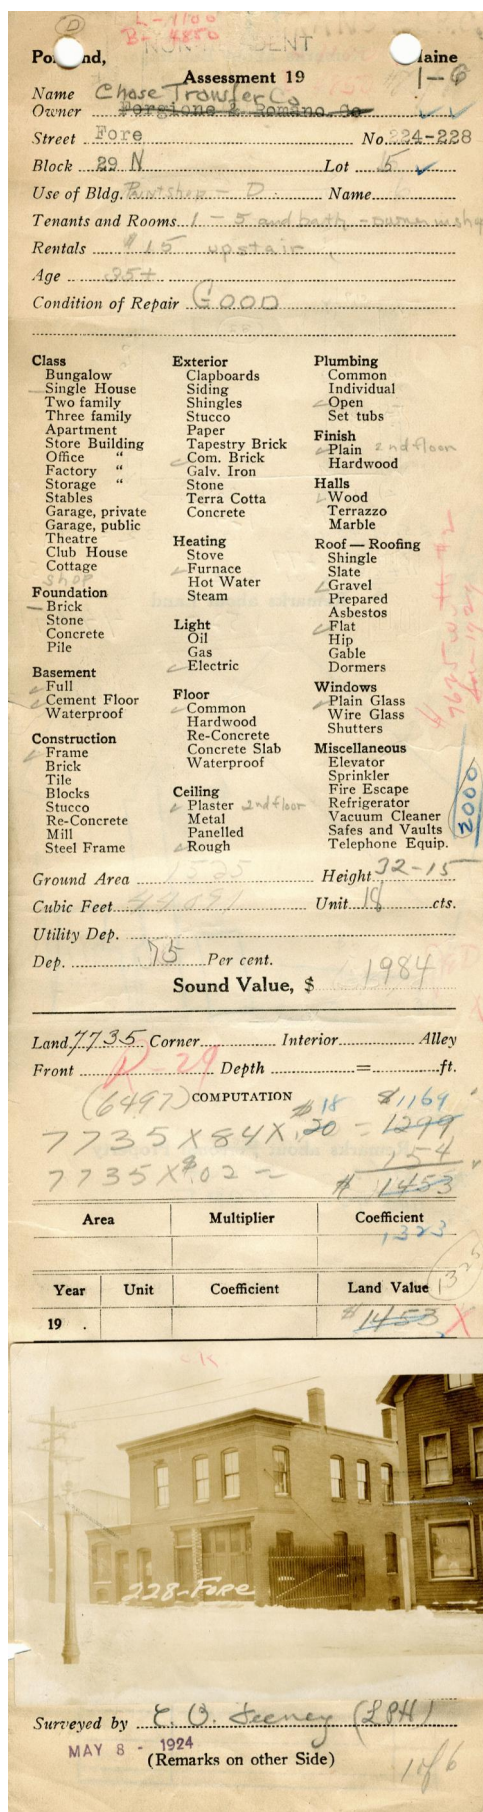 D
L-1100
B-4850
NON-RESIDENT
Portland, Maine
Assessment 19
1-6
Name Chase Transfer Co
Owner Forgione & Romano Co
Street Fore No. 224-228
Block 29 N Lot 5
Use of Bldg. Paint shop - D. Name
Tenants and Rooms 1-5 and bath - owner in shop
Rentals $15 upstair
Age 35+
Condition of Repair GOOD
Class
Bungalow
Single House
Two family
Three family
Apartment
Store Building
Office "
Factory "
Storage "
Stables
Garage, private
Garage, public
Theatre
Club House
Cottage
shop
Foundation
Brick
Stone
Concrete
Pile
Basement
Full
Cement Floor
Waterproof
Construction
Frame
Brick
Tile
Blocks
Stucco
Re-Concrete
Mill
Steel Frame
Exterior
Clapboards
Siding
Shingles
Stucco
Paper
Tapestry Brick
Com. Brick
Galv. Iron
Stone
Terra Cotta
Concrete
Heating
Stove
Furnace
Hot Water
Steam
Light
Oil
Gas
Electric
Floor
Common
Hardwood
Re-Concrete
Concrete Slab
Waterproof
Ceiling
Plaster 2nd floor
Metal
Panelled
Rough
Plumbing
Common
Individual
Open
Set tubs
Finish
Plain 2nd floor
Hardwood
Halls
Wood
Terrazzo
Marble
Roof — Roofing
Shingle
Slate
Gravel
Prepared
Asbestos
Flat
Hip
Gable
Dormers
Windows
Plain Glass
Wire Glass
Shutters
Miscellaneous
Elevator
Sprinkler
Fire Escape
Refrigerator
Vacuum Cleaner
Safes and Vaults
Telephone Equip.
2000
Ground Area 1525 Height 32-15
Cubic Feet 44091 Unit 18 cts.
Utility Dep.
Dep. 75 Per cent.
Sound Value, $ 1984
Land 7735 Corner Interior Alley
Front Depth = ft.
R-29
(6497) COMPUTATION $ 18 $1169
7735 X 84 X .20 = 1299
154
7735 X $.02 = $ 1453
Area Multiplier Coefficient
1323
1325
Year Unit Coefficient Land Value
19 . $1453 X
OK
228-FORE
Surveyed by C. B. Feeney (LPH)
MAY 8 - 1924
(Remarks on other Side)
1 of 6